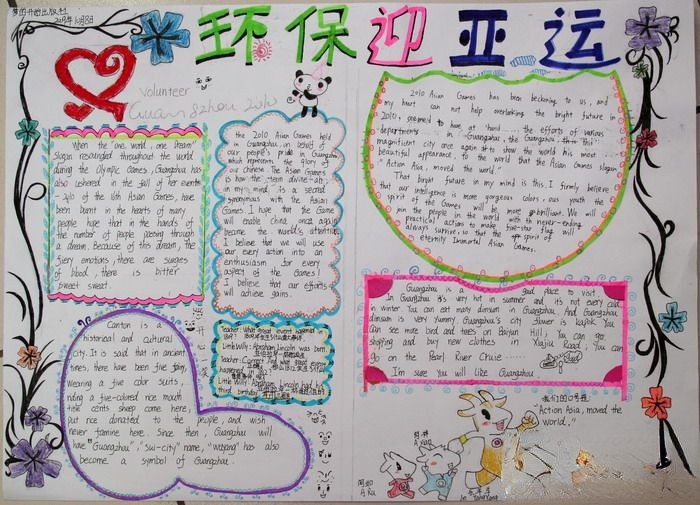 环保迎亚运
Volunteer
Guangzhou 2010
When the "one world, one Dream"
slogan resounded throughout the world
during the Olympic Games, Guangzhou has
also ushered in the fall of her events
of the 16th Asian Games, have
been burnt in the hearts of many
people hope that in the hands of
the number of people passing through
a dream. Because of this dream, the
fiery emotions, there are surges
of blood, there is bitter
sweet sweat.
The 2010 Asian Games held
in Guangzhou, on behalf of
our people's pride in Guangzhou
which represents the glory of
our chinese The Asian Games
is how the term divine-ah
in my mind, is a sacred
synonymous with the Asian
Games. I hope that the Game
will enable china once again
become the world's attention,
I believe that we will use
our every action into an
enthusiasm for every
aspect of the Games!
I believe that our efforts
will achieve gains.
2010 Asian Games has been beckoning to us, and
my heart can not help overlooking the bright future in
2010, seemed to have at hand ..... the efforts of various
departments in Guangzhou, the Guangzhou this
magnificient city once again to show the world his most
beautiful appearance, to the world that the Asian Games slogan
"Action Asia, moved the world."
That bright future in my mind is this, I firmly believe
that our intelligence is more gorgeous colors, our youth the
spirit of the Games will be more brilliant. We will
join the people in the world with never-ending
practical actions to make five-star flag will
always survive, so that the spirit of
eternity Immortal Asian Games.
Guangzhou is a good place to visit.
In Guangzhou it's very hot in summer and it's not every cold
in winter. You can eat many dimsum in Guangzhou. And Guangzhou
dimsum is very yummy Guangzhou's city flower is kapok. You
can see more bird and trees on Baiyun Hill, You can go
shopping and buy new clothes in Xiajiu Road, You can
go on the Pearl River Cruise ......
I'm sure You will like Guangzhou
Canton is a
historical and cultural
city. It is said that in ancient
times, there have been five
wearing a five color suits,
riding a five-colored rice mouth
title cents sheep come here,
but rice donated to the people, and wish
never famine here. Since then, Guangzhou will
have "Guangzhou", "Sui-city" name, "Wuyang" has also
become a symbol of Guangzhou.
Teacher: What great event happened in
Little Willy: Abraham Lincoln was born.
Teacher: Correct. And what great
happened
Little Willy: Abraham Lincoln had his
third birthday.
开
笑
我们的口号是
"Action Asia, moved the
world."
A Xiang
A Ru
Le Yangyang